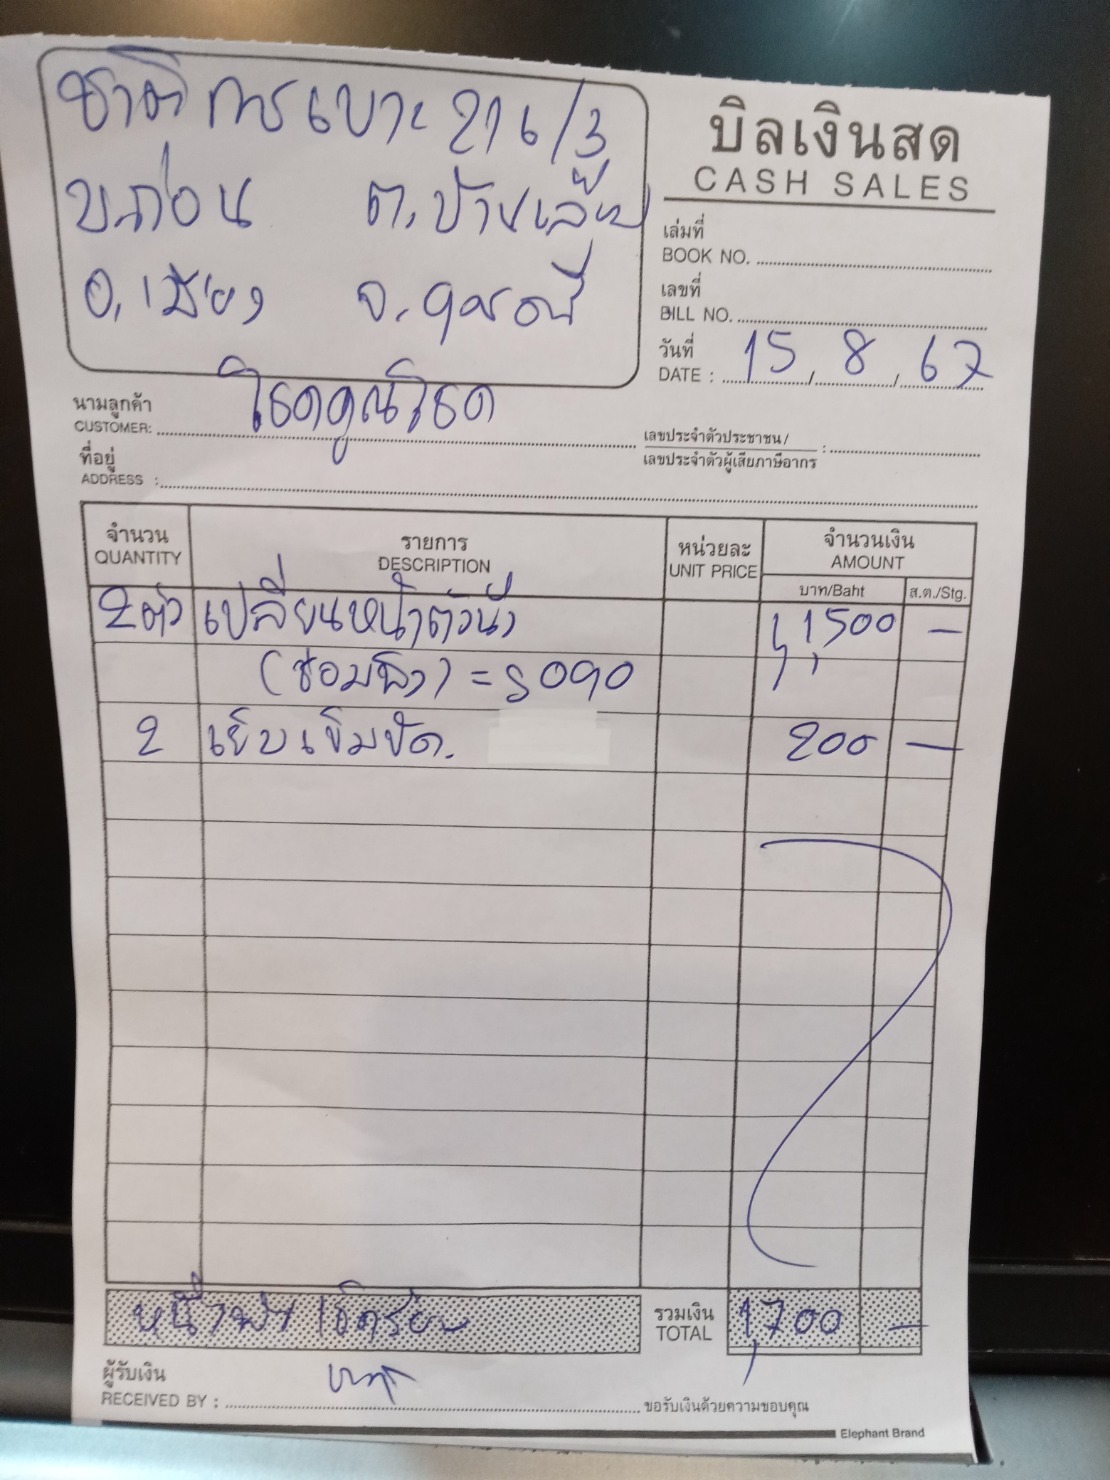 ชาติการเบาะ 216/3
บ.ก่อน ต.บ้านเลื่อม
อ.เมือง จ.อุดรธานี
บิลเงินสด
CASH SALES
เล่มที่
BOOK NO.
เลขที่
BILL NO.
วันที่
DATE : 15 / 8 / 67
นามลูกค้า
CUSTOMER: โชคคูณโชค
เลขประจำตัวประชาชน /
เลขประจำตัวผู้เสียภาษีอากร :
ที่อยู่
ADDRESS :
จำนวน รายการ หน่วยละ จำนวนเงิน
QUANTITY DESCRIPTION UNIT PRICE AMOUNT
บาท/Baht ส.ต./Stg.
2 ตัว เปลี่ยนหน้าตัวนั่ง 1,500 -
(ซ่อมพิง) = 5090
2 เย็บเข็มขัด. 200 -
รวมเงิน
TOTAL 1,700 -
ผู้รับเงิน
RECEIVED BY :
ขอรับเงินด้วยความขอบคุณ
Elephant Brand